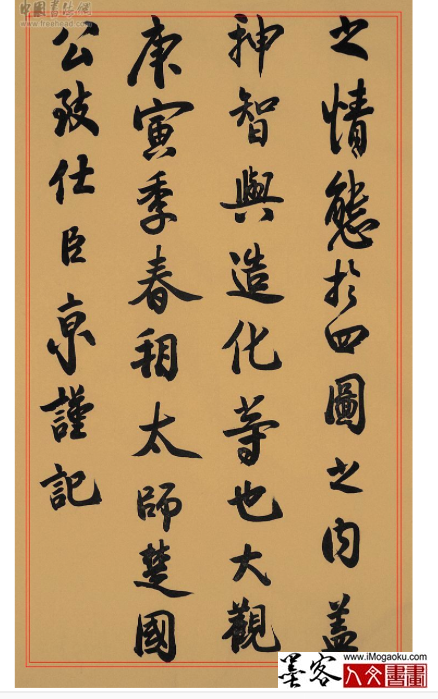 之情態於四圖之内盖
神智與造化等也大觀
庚寅季春相太師楚國
公致仕臣京謹記
中國書法網
www.freehead.com
www.iMogaoku.com
墨客
人文書畫